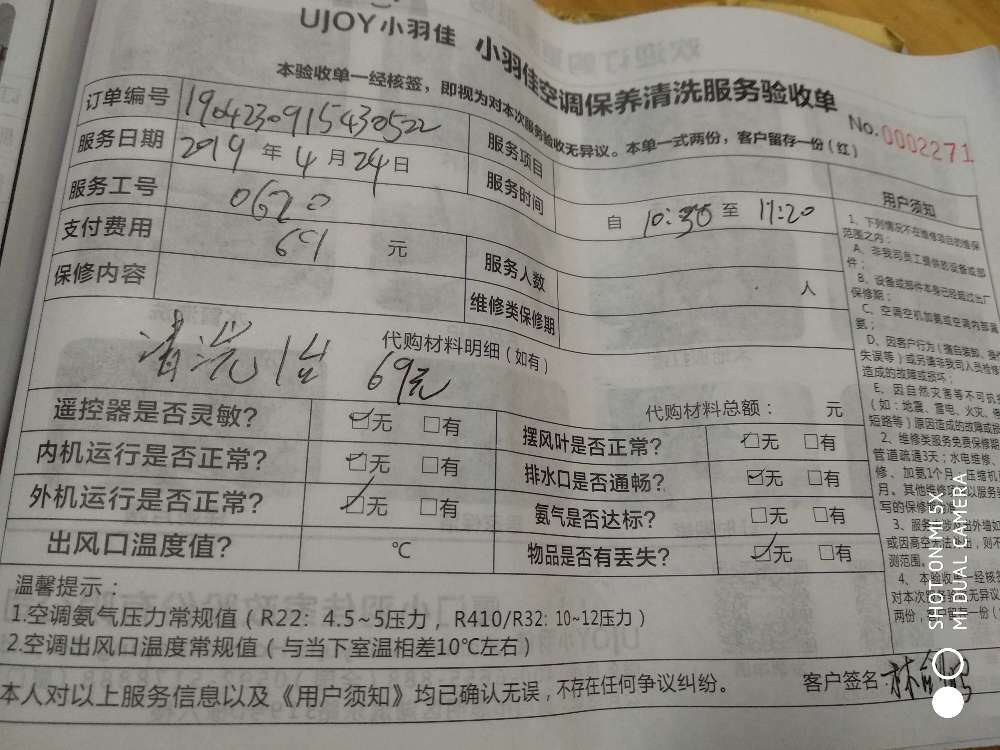 UJOY小羽佳 小羽佳空调保养清洗服务验收单
本验收单一经核签，即视为对本次服务验收无异议。本单一式两份，客户留存一份（红）
No.0002271
订单编号 190423091543052 服务项目
服务日期 2019 年 4 月 24 日 服务时间 自 10:30 至 11:20
服务工号 0620
支付费用 69 元 服务人数 人
保修内容 维修类保修期
代购材料明细（如有）
清洗1台 69元
代购材料总额： 元
遥控器是否灵敏? ☑无 □有 摆风叶是否正常? ☑无 □有
内机运行是否正常? ☑无 □有 排水口是否通畅? ☑无 □有
外机运行是否正常? ☑无 □有 氨气是否达标? □无 □有
出风口温度值? ℃ 物品是否有丢失? ☑无 □有
温馨提示：
1.空调氨气压力常规值（R22: 4.5~5压力，R410/R32: 10~12压力）
2.空调出风口温度常规值（与当下室温相差10℃左右）
本人对以上服务信息以及《用户须知》均已确认无误，不存在任何争议纠纷。 客户签名
用户须知
1、下列情况不在维修项目的维保
范围之内：
A、非我司员工提供的设备或部
件；
B、设备或部件本身已经超过出厂
保修期；
C、空调空机加氨或空调内部漏
氨；
D、因客户行为（擅自装卸、操作
失误等）或另请非我司人员检修
造成的故障或损坏；
E、因自然灾害等不可抗
（如：地震、雷电、火灾、
短路等）原因造成的故障或损
2、维修类服务免费保修期
管道疏通3天；水电维修、
修、加氨1个月、压缩机
月。其他维修项 以服务
写的保修
3、服务 涉及出外墙如
或因高空无法 出，则不
测范围。
4、本验收 一经核签
对本次服务验 无异议
两份，客户留存一份（
SHOT ON MI 5X
MI DUAL CAMERA